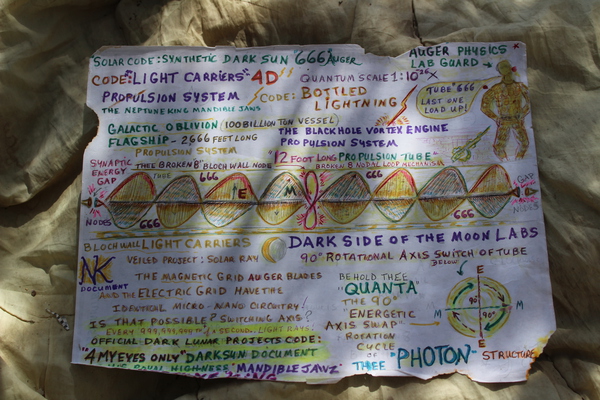 SOLAR CODE: SYNTHETIC DARK SUN "666" AUGER
CODE: "LIGHT CARRIERS" 4D
PROPULSION SYSTEM
THE NEPTUNE KING MANDIBLE JAWS
QUANTUM SCALE 1:10
CODE: BOTTLED LIGHTNING
AUGER PHYSICS
LAB GUARD →
TUBE 666
LAST ONE
LOAD UP!
GALACTIC OBLIVION (100 BILLION TON VESSEL)
FLAGSHIP - 2,666 FEET LONG
PROPULSION SYSTEM
THE BLACK HOLE VORTEX ENGINE
PROPULSION SYSTEM
12 FOOT LONG PROPULSION TUBE
SYNAPTIC
ENERGY
GAP
"THEE BROKEN 8" BLOCH WALL NODE
BROKEN 8 NODAL LOOP MECHANISM
TUBE 666 666
E M
GAP
NODES
NODES 666 666
BLOCH WALL LIGHT CARRIERS
DARK SIDE OF THE MOON LABS
VEILED PROJECT: SOLAR RAY
90° ROTATIONAL AXIS SWITCH OF TUBE
BELOW
NK
DOCUMENT
THE MAGNETIC GRID AUGER BLADES
AND THE ELECTRIC GRID HAVE THE
IDENTICAL MICRO-NANO CIRCUITRY!
IS THAT POSSIBLE? SWITCHING AXIS?
OFFICIAL DARK LUNAR PROJECTS CODE:
"4 MY EYES ONLY" DARK SUN DOCUMENT
HIGHNESS "MANDIBLE JAWZ"
BEHOLD THEE
"QUANTA"
THE 90°
"ENERGETIC
AXIS SWAP"
ROTATION
CYCLE
OF
THEE "PHOTON" STRUCTURE
E
M 90° 90° M
E